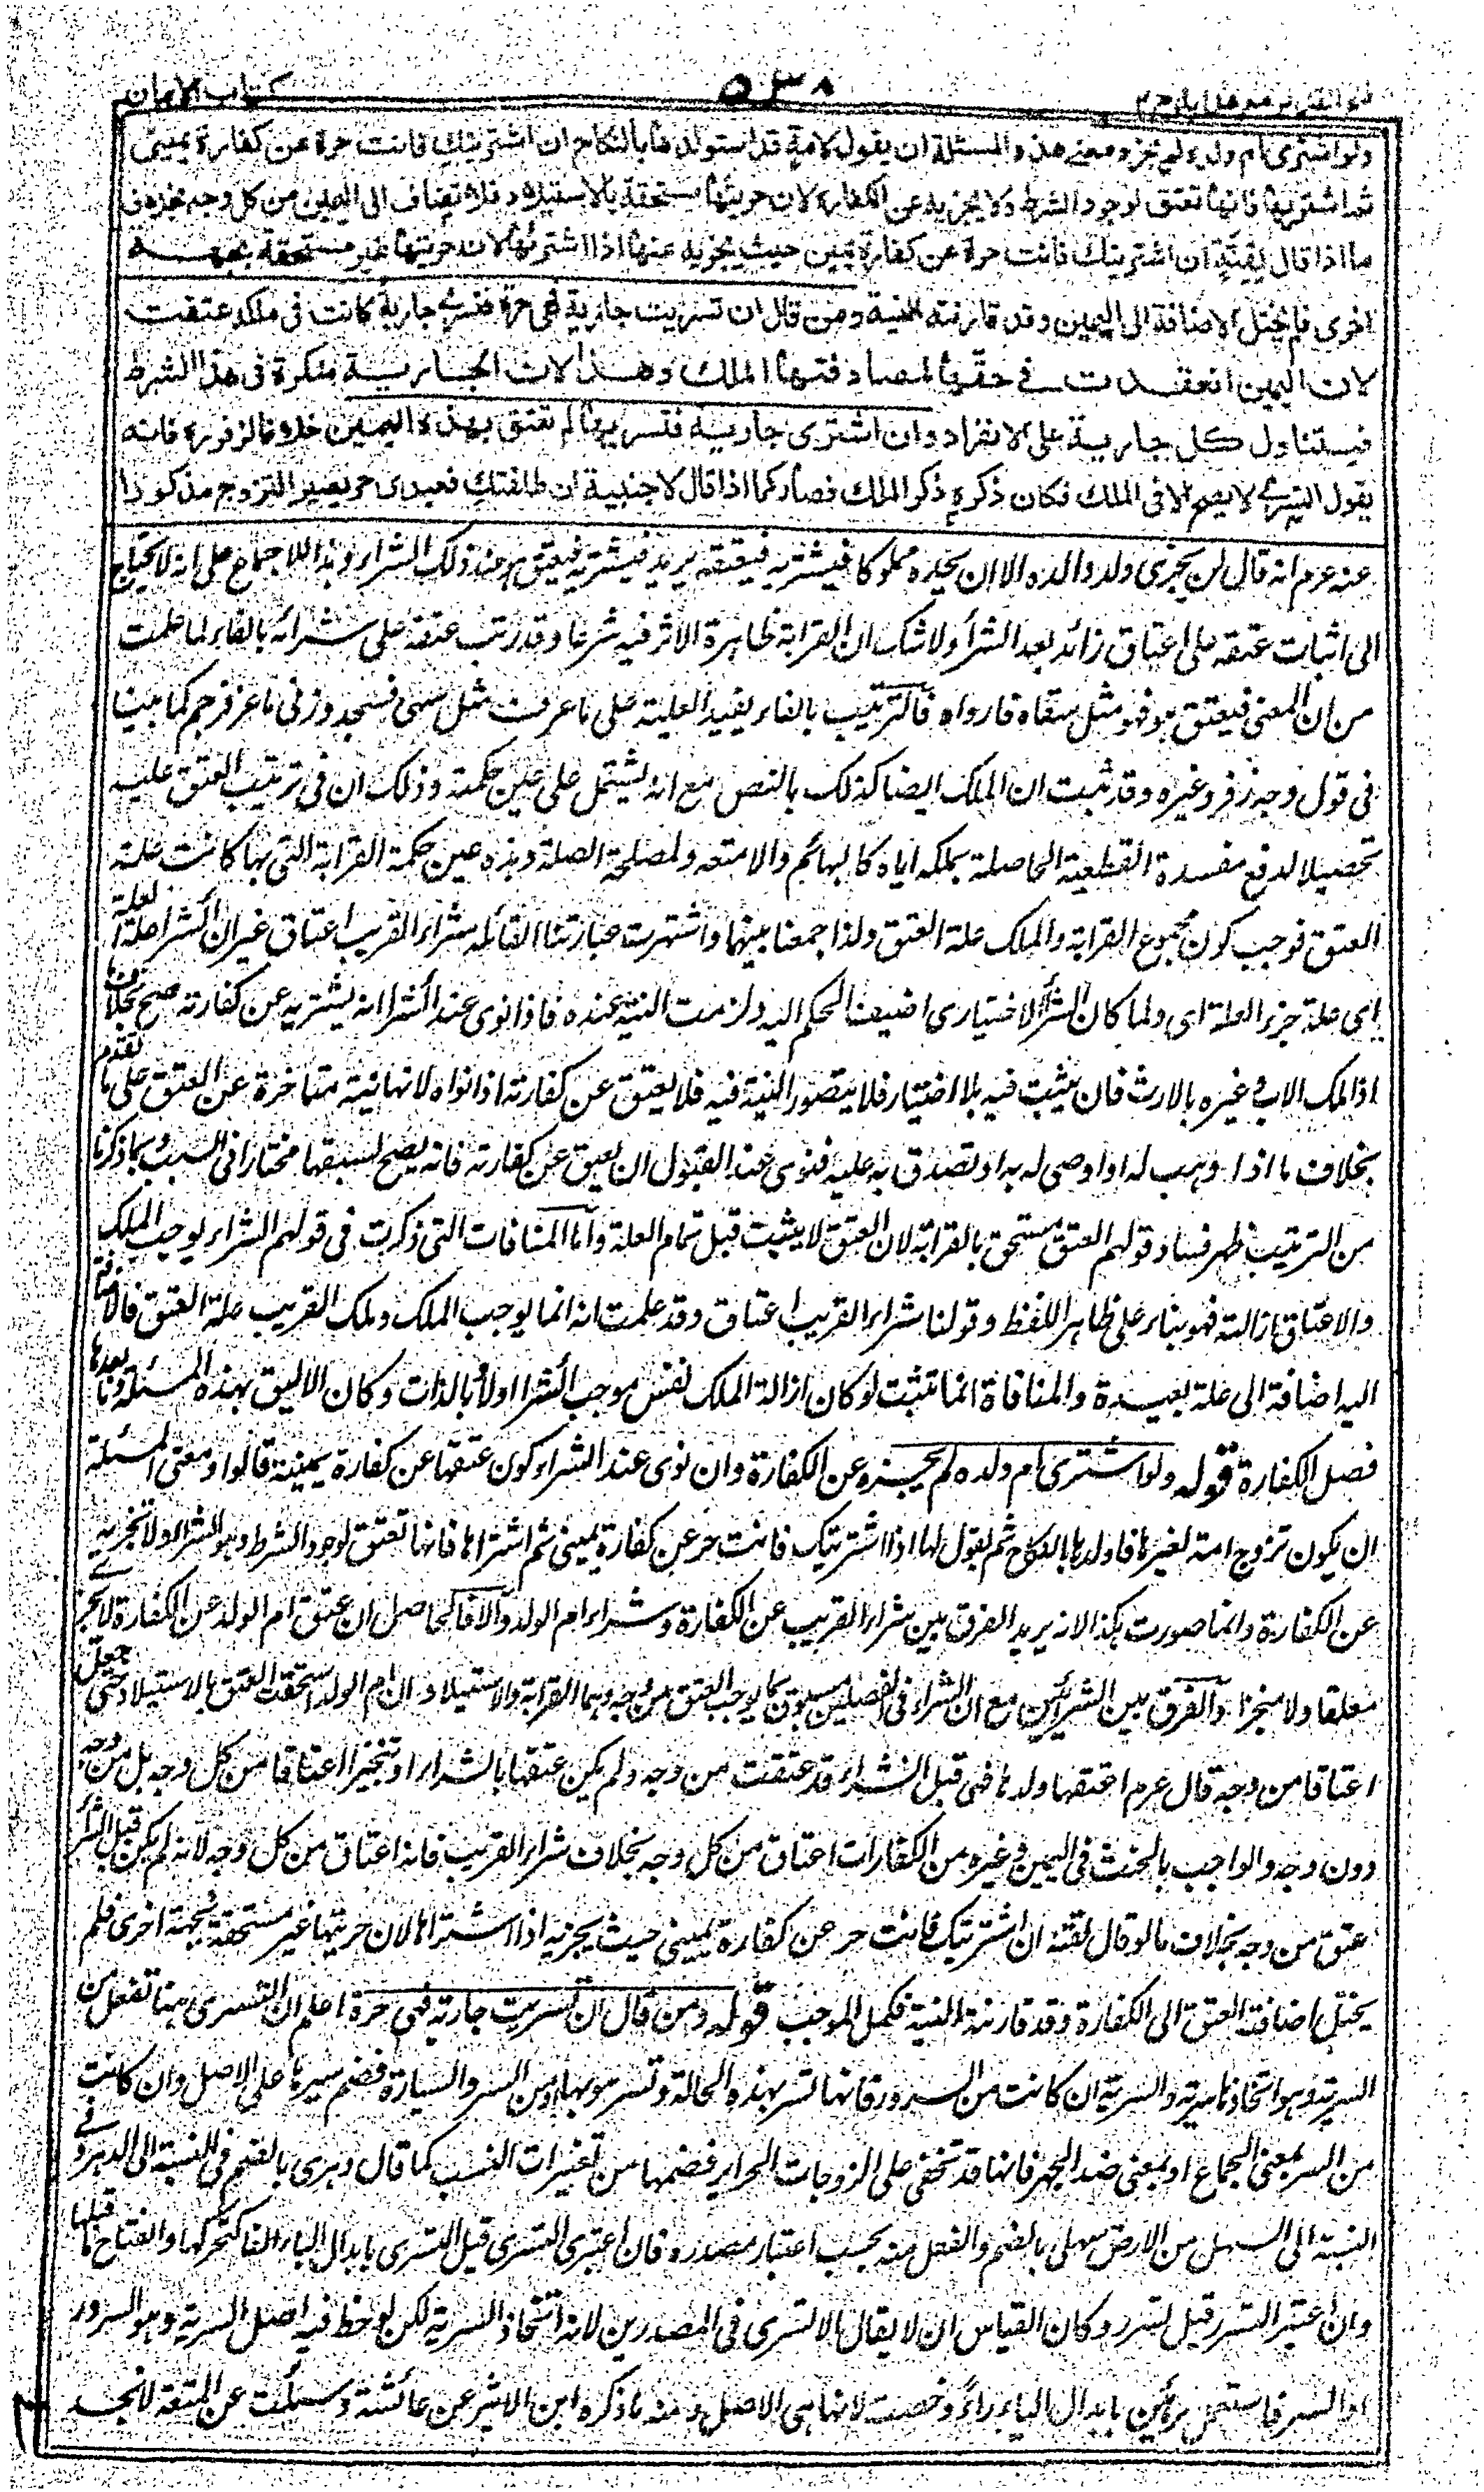 كتاب الايمان
٥٣٨
فتح القدير مع هدايه
ولو اشترى ام ولده لم يجز ومعنى هذه المسئلة ان يقول لامة قد استولدها بالنكاح ان اشتريتك فانت حرة عن كفارة يمينى
ثم اشتريها فانها تعتق لوجود الشرط ولا يجزيه عن الكفارة لان حريتها مستحقة بالاستيلاد فلا تضاف الى اليمين من كل وجه بخلاف
ما اذا قال لقِنّةٍ ان اشتريتك فانت حرة عن كفارة يمين حيث يجزيه عنها اذا اشتريها لان حريتها غير مستحقة بجهة
اخرى فلم يختل الاضافة الى اليمين وقد قارنته النية ومن قال ان تسريت جارية فهى حرة فتسرى جارية كانت فى ملكه عتقت
لان اليمين انعقدت فى حقها لمصادفتها الملك وهذا لان الجارية منكرة فى هذا الشرط
فيتناول كل جارية على الانفراد وان اشترى جارية فتسريها لم تعتق بهذه اليمين خلافا لزفر فانه
يقول التسرى لا يصح الا فى الملك فكان ذكره ذكر الملك فصار كما اذا قال لاجنبية ان طلقتك فعبدى حر يصير التزوج مذكورا
عنه عرم انه قال لن يجزى ولد والده الا ان يجده مملوكا فيشتريه فيعتقه يريد فيشتريه فيعتق هو عند ذلك الشراء وهذا للاجماع على انه لا يحتاج
الى اثبات عتقه على اعتاق زائد بعد الشرأ ولا شك ان القرابة ظاهرة الاثر فيه شرعا وقد رتب عتقه على شرائه بالفاء لما علمت
من ان المعنى فيعتق هو فهو مثل سقاه فارواه فالترتيب بالفاء يفيد العلية على ما عرفت مثل سهى فسجد وزنى ماعز فرجم كما بينا
فى قول وجه زفر وغيره وقد ثبت ان الملك ايضا كذلك بالنص مع انه يشتمل على عين حكمة وذلك ان فى ترتيب العتق عليه
تحصيلا لدفع مفسدة القطيعة الحاصلة بملكه اياه كالبهائم والامتعه ولمصلحة الصلة وهذه عين حكمة القرابة التى بها كانت علة
العتق فوجب كون مجموع القرابة والملك علة العتق ولذا جمعنا بينهما واشتهرت عبارتنا القائلة شراء القريب اعتاق غير ان الشرا علة العلة
اى علة جزء العلة اى ولما كان الشرأ الاختيارى اضيف الحكم اليه ولزمت النية عنده فاذا نوى عند الشرا انه يشتريه عن كفارته صح بخلاف ما
اذا ملك الاب وغيره بالارث فان يثبت فيه بلا اختيار فلا يتصور النية فيه فلا يعتق عن كفارته اذا نواه لانها نية متاخرة عن العتق على ما تقدم
بخلاف ما اذا وهب له او اوصى له به او تصدق به عليه فنوى عند القبول ان يعتق عن كفارته فانه يصح لسبقها مختارا فى السبب وبما ذكرنا
من الترتيب ظهر فساد قولهم العتق مستحق بالقرابة لان العتق لا يثبت قبل تمام العلة واما المنافات التى ذكرت فى قولهم الشراء يوجب الملك
والاعتاق ازالته فهو بناء على ظاهر اللفظ وقولنا شراء القريب اعتاق وقد علمت انه انما يوجب الملك وملك القريب علة العتق فالاضافة
اليه اضافة الى علة بعيدة والمنافاة انما تثبت لو كان ازالة الملك نفس موجب الشرا اولا بالذات وكان الاليق بهذه المسئلة وما بعدها
فصل الكفارة قوله ولو اشترى ام ولده لم يجزه عن الكفارة وان نوى عند الشراء كون عتقها عن كفارة يمينه قالوا ومعنى المسئلة
ان يكون تزوج امة لغيره فاولدها بالنكاح ثم يقول لها اذا اشتريتك فانت حر عن كفارة يمينى ثم اشتراها فانها تعتق لوجود الشرط وهو الشرا ولا تجزيه
عن الكفارة وانما صورت هكذا لانه يريد الفرق بين شراء القريب عن الكفارة وشراء ام الولد والا فالحاصل ان عتق ام الولد عن الكفارة لا يجزى
معلقا ولا منجزا والفرق بين الشرائين مع ان الشراء فى الفصلين مسبوق بما يوجب العتق من وجه وهما القرابة والاستيلاد ان ام الولد استحقت العتق بالاستيلاد حتى جعل
اعتاقا من وجه قال عرم اعتقها ولدها فهى قبل الشراء قد عتقت من وجه ولم يكن عتقها بالشراء او تنجيزا اعتاقا من كل وجه بل من وجه
دون وجه والواجب بالحنث فى اليمين وغيره من الكفارات اعتاق من كل وجه بخلاف شراء القريب فانه اعتاق من كل وجه لانه لم يكن قبل الشرأ
عتق من وجه بخلاف ما لو قال لقنة ان اشتريتك فانت حر عن كفارة يمينى حيث يجزيه اذا اشتراها لان حريتها غير مستحقة بجهة اخرى فلم
يختل اضافة العتق الى الكفارة وقد قارنته النية فكمل الموجب قوله ومن قال ان تسريت جارية فهى حرة اعلم ان التسرى هنا تفعل من
السرية وهو اتخاذها سرية والسرية ان كانت من السرور فانها تسر بهذه الحالة وتسر هو بها او من السر والسيادة فضم سيرها على الاصل وان كانت
من السر بمعنى الجماع او بمعنى ضد الجهر فانها قد تخفى على الزوجات الحراير فضمها من تغيرات النسب كما قال دهرى بالضم فى النسبة الى الدهر وفى
النسبة الى السهل من الارض سهلى بالضم والفعل منه بحسب اعتبار مصدره فان اعتبرى التسرى قيل التسرى بابدال الياء الفا لتحركها وانفتاح ما قبلها
وان اعتبر التسرر قيل تسرر وكان القياس ان لا يقال الا التسرى فى المصدرين لانه اتخاذ السرية لكن لوحظ فيه اصل السرية وهو السرور
او السر فاستعمل برائين بابدال الياء راءً وخصت لانها هى الاصل ومنه ما ذكره ابن الاثير عن عائشة وسئلت عن المتعة لا نجد